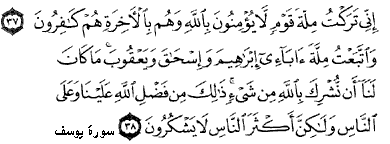 إِنِّي تَرَكْتُ مِلَّةَ قَوْمٍ لَّا يُؤْمِنُونَ بِٱللَّهِ وَهُم بِٱلْأَخِرَةِ هُمْ كَٰفِرُونَ ٣٧
وَٱتَّبَعْتُ مِلَّةَ ءَابَآءِىٓ إِبْرَٰهِيمَ وَإِسْحَٰقَ وَيَعْقُوبَ ۚ مَا كَانَ
لَنَآ أَن نُّشْرِكَ بِٱللَّهِ مِن شَىْءٍ ۚ ذَٰلِكَ مِن فَضْلِ ٱللَّهِ عَلَيْنَا وَعَلَى
ٱلنَّاسِ وَلَٰكِنَّ أَكْثَرَ ٱلنَّاسِ لَا يَشْكُرُونَ ٣٨ سورة يوسف